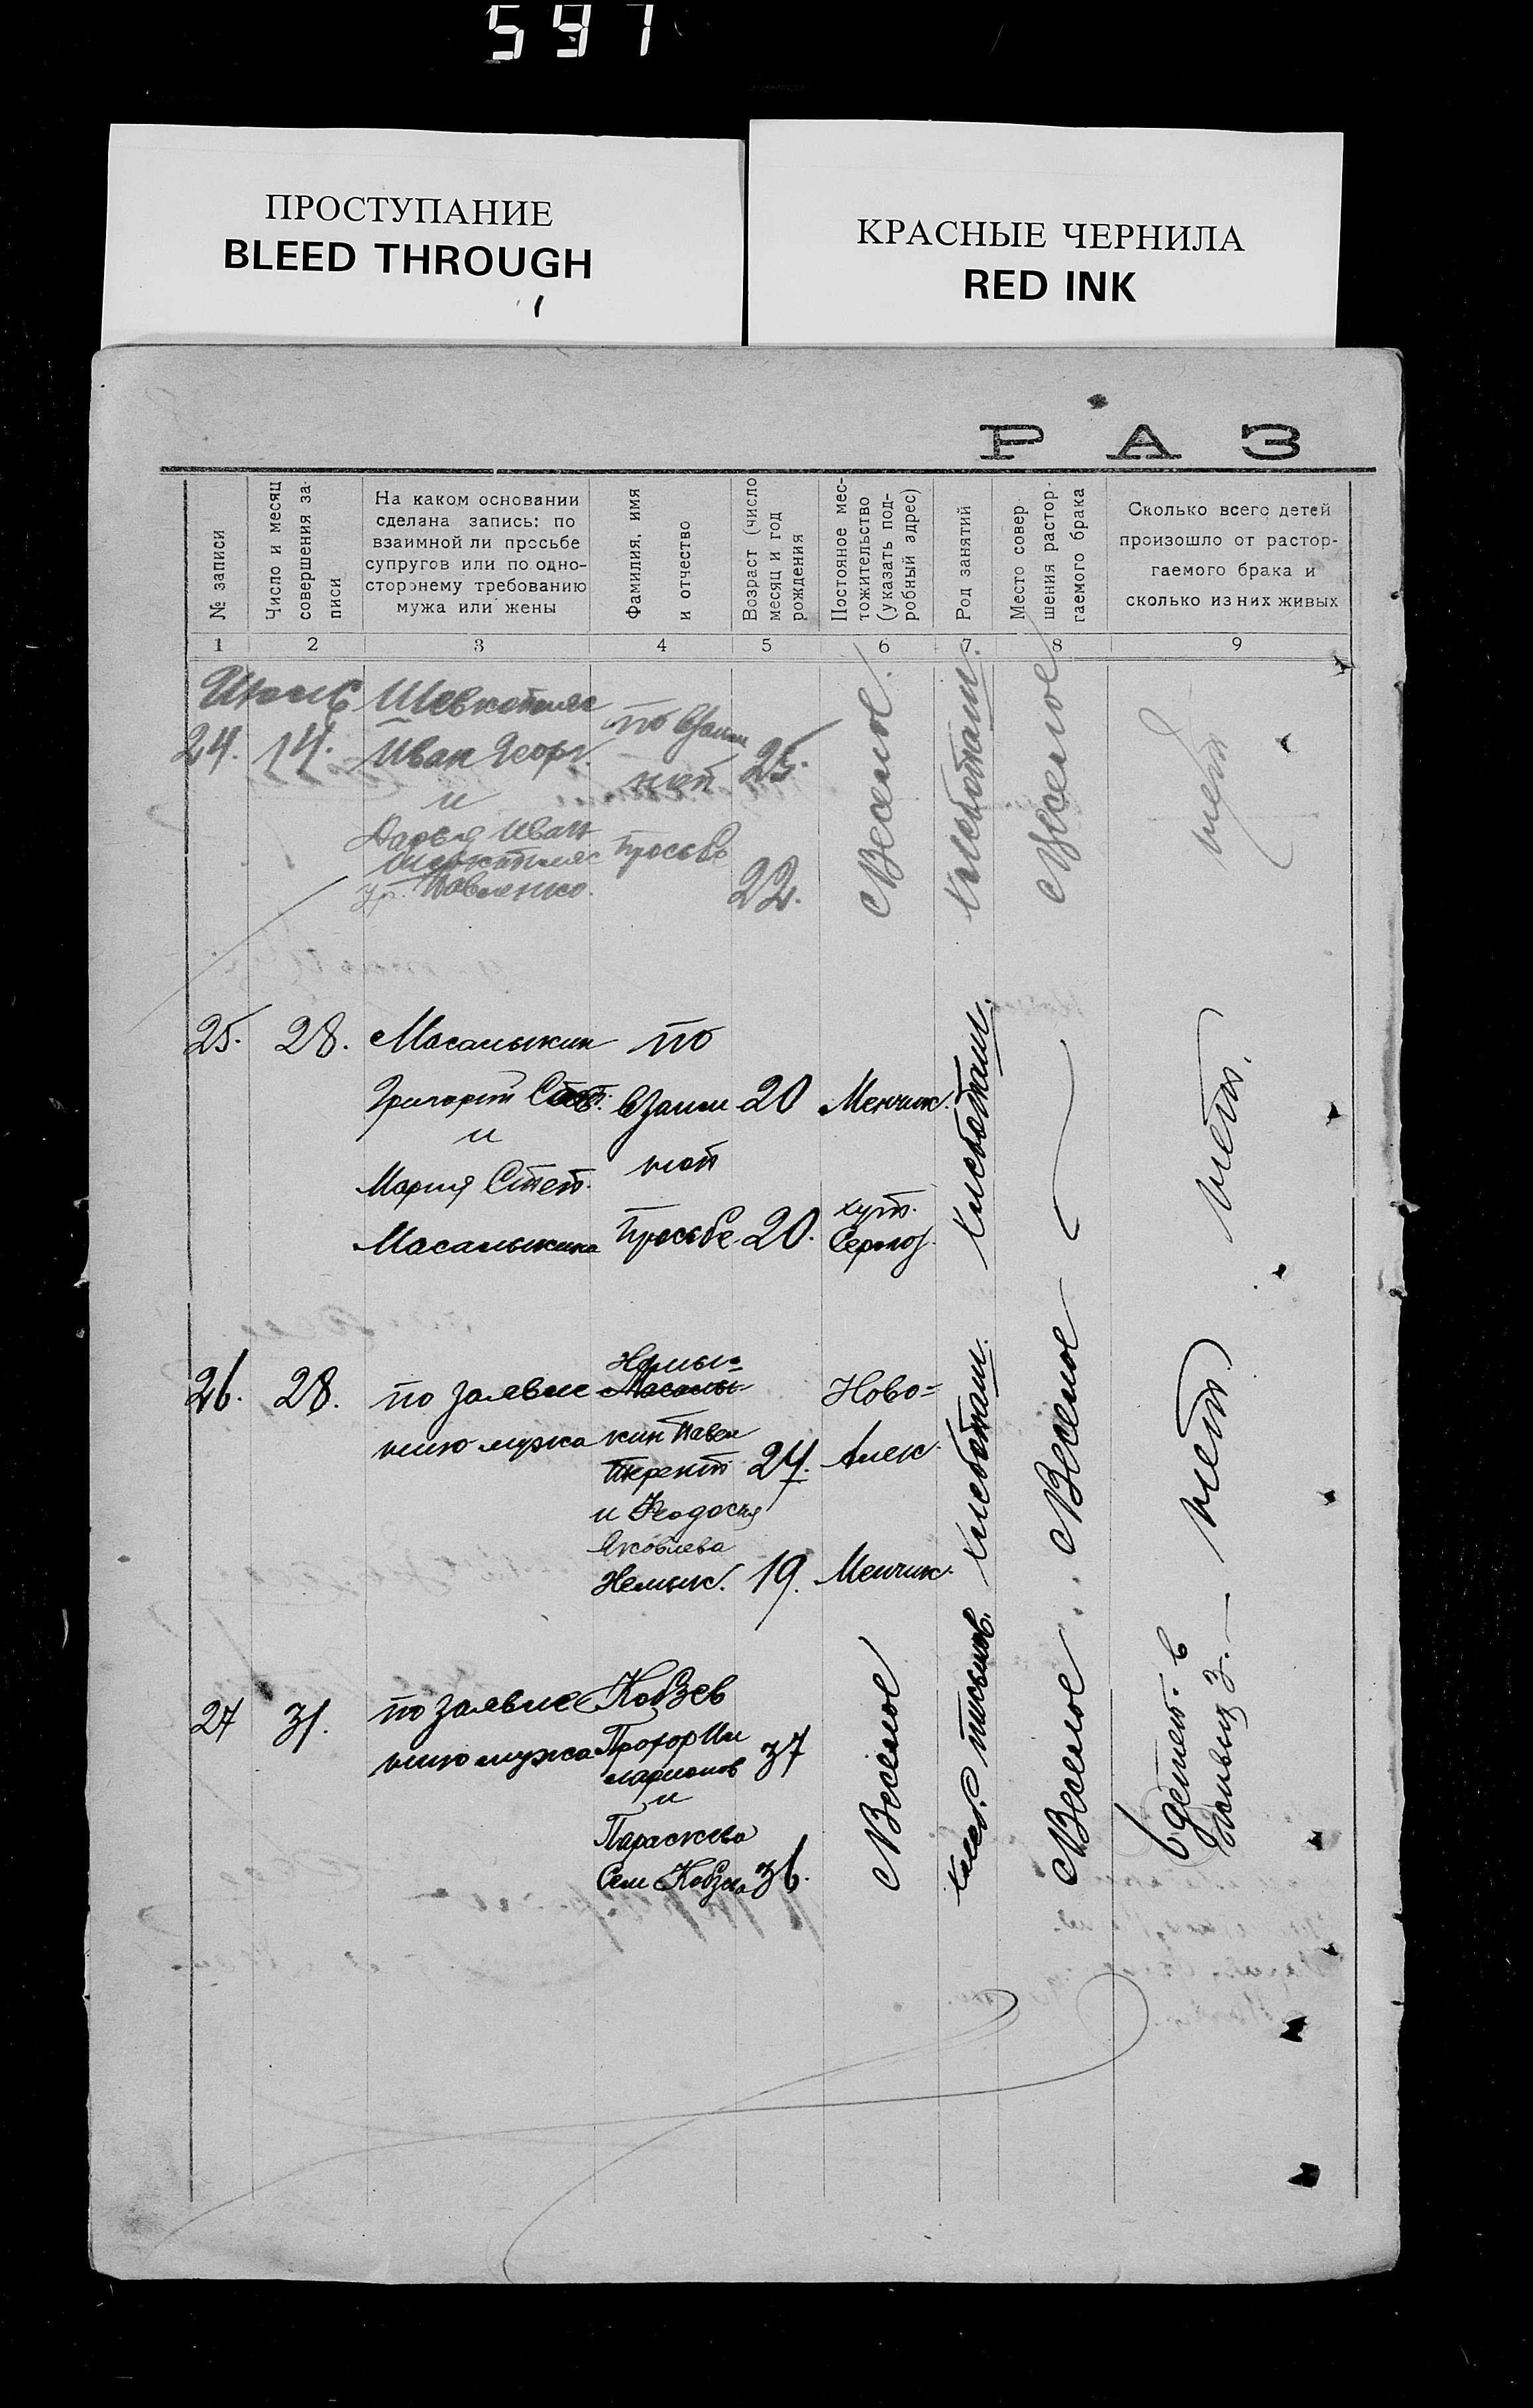 597
ПРОСТУПАНИЕ
BLEED THROUGH
КРАСНЫЕ ЧЕРНИЛА
RED INK
РАЗ
№ записи
Число и месяц
совершения за-
писи
На каком основании
сделана запись: по
взаимной ли просьбе
супругов или по одно-
стороннему требованию
мужа или жены
Фамилия, имя
и отчество
Возраст (число
месяц и год
рождения
Постояное мес-
тожительство
(указать под-
робный адрес)
Род занятий
Место совер
шения растор-
гаемого брака
Сколько всего детей
произошло от растор-
гаемого брака и
сколько из них живых
1 2 3 4 5 6 7 8 9
24. 14.
Иван Георг.
и
Дарья Иван
ур. Павленко.
по взаим
ной
просьбе
25.
22.
с Веселое.
хлебопаш.
с Веселое
нет
25. 28.
Масалыкин
Григорий
и
Мария Степ.
Масалыкина
по
взаим
ной
просьбе
20
20.
Менчик.
хут.
хлебопаш.
нет.
26. 28.
по заявле
нию мужа
кин Павел
Терент
и Феодосия
Яковлева
24.
19.
Ново=
Алек.
Менчик.
хлебопаш.
с Веселое
нет
27 31.
по заявле
нию мужа
Кобзев
Прохор Ил
ларионов
и
Параскева
Сем Кобзева
37
36.
с Веселое
с Веселое
6 детей. в
живых 3.